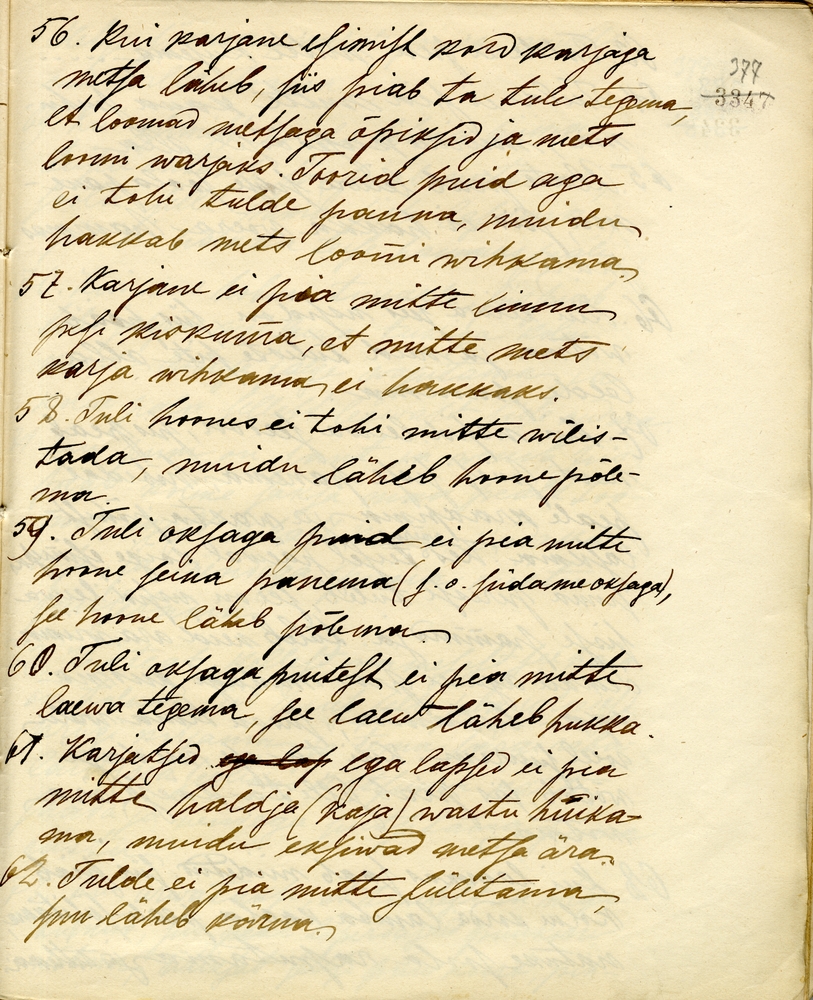 377
3347
56. Kui karjane esimist kord karjaga
metsa läheb, siis piab ta tule tegema,
et loomad metsaga õpiksid ja mets
loomi warjaks. Toorid puid aga
ei tohi tulde panna, muidu
hakkab mets loomi wihkama.
57. Karjane ei pia mitte linnu
pesi kiskuma, et mitte mets
karja wihkama ei hakkaks.
58. Tuli hoones ei tohi mitte wilis-
tada, muidu läheb hoone põle-
ma.
59. Tuli oksaga puid ei pia mitte
hoone seina panema (s. o. südame oksaga),
see hoone läheb põlema.
60. Tuli oksaga puitest ei pia mitte
laewa tegema, see laew läheb hukka.
61. Karjatsed ega lapsed ei pia
mitte haldja (kaja) wastu hüika-
ma, muidu eksiwad metsa ära.
62. Tulde ei pia mitte sülitama,
suu läheb kärna.